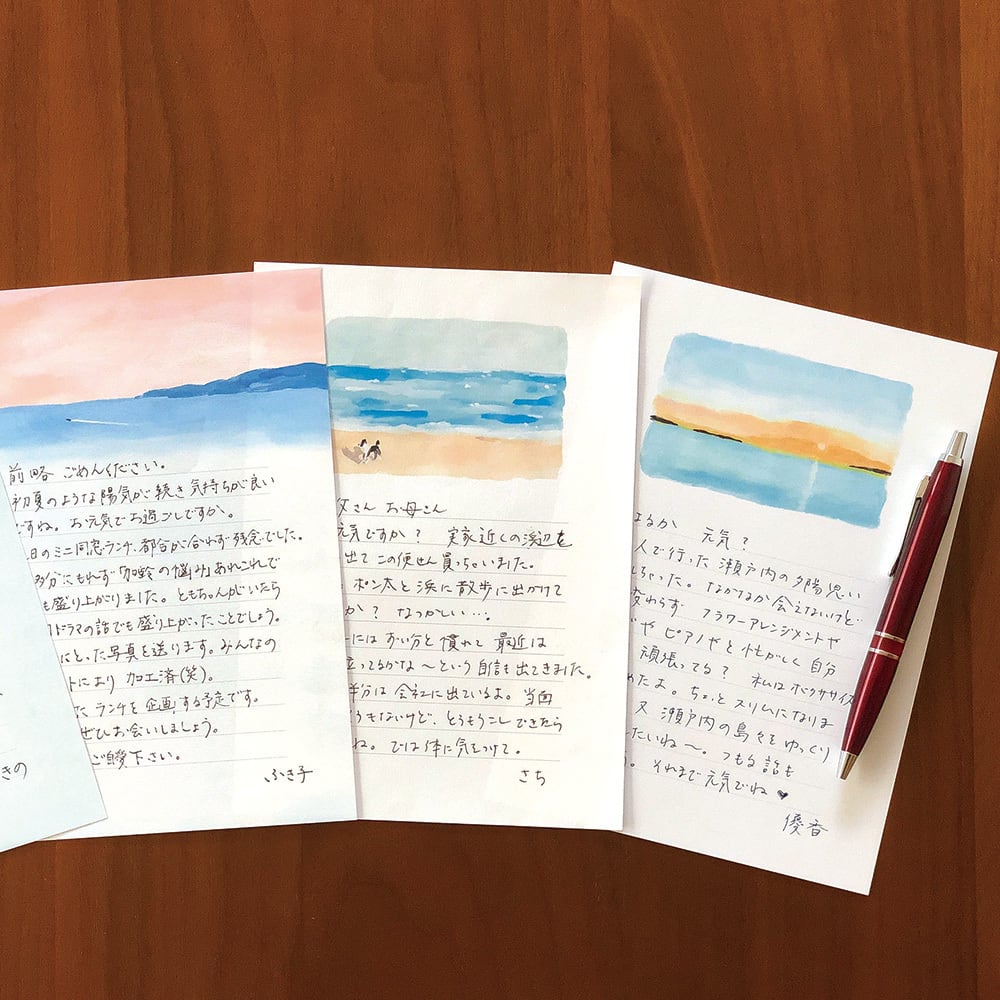 きの
前略 ごめんください。
初夏のような陽気が続き気持ちが良い
ですね。お元気でお過ごしですか。
日のミニ同窓ランチ、都合が合わず残念でした。
多分にもれず「加齢の悩み」あれこれで
も盛り上がりました。ともちゃんがいたら
ドラマの話でも盛り上がったことでしょう。
にとった写真を送ります。みんなの
トにより 加工済(笑)。
た ランチを企画する予定です。
ぜひお会いしましょう。
ご自愛下さい。
ふさ子
父さん お母さん
元気ですか? 実家近くの浜辺を
出て この便せん買っちゃいました。
ポン太と浜に散歩に出かけて
か? なつかしい…。
ーにはずい分と慣れて 最近は
立ってるかな〜という自信も出てきました。
半分は会社に出ているよ。当面
うもないけど、とうもろこしできたら
ね。では体に気をつけて。
さち
はるか 元気?
人で行った瀬戸内の夕陽思い
しちゃった。なかなか会えないけど…
変わらず フラワーアレンジメントや
や ピアノやと忙がしく自分
頑張ってる? 私はボクササイズ
めたよ。ちょっとスリムになりま
又 瀬戸内の島々をゆっくり
たいね〜。つもる話も
。それまで元気でね♥
優香